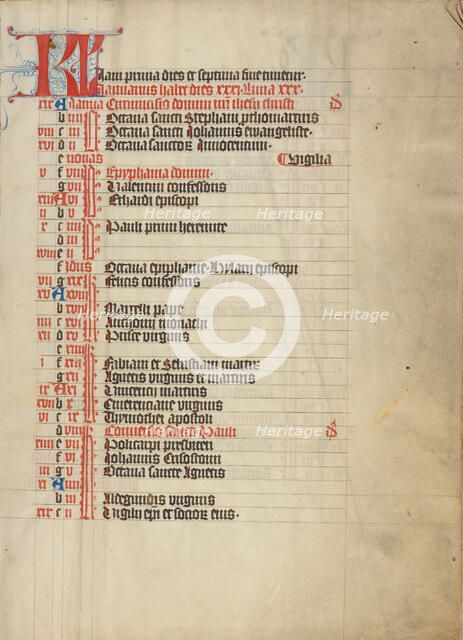 KL Iani prima dies et septima fine timetur.
Ianuarius habet dies xxxi. Luna xxx.
xix A Ianua Circumcisio domini nostri ihesu christi
b iiii Octava sancti Stephani prothomartiris
viii c iii Octava sancti Johannis ewangeliste.
xvi d ii Octava sanctorum Innocentum
e nonas Vigilia
v f viii Epyphania domini.
g vii Valentini confessoris
xiii A vi Erhardi episcopi
ii b v
x c iiii Pauli primi heremite
d iii
xviii e ii
f Idus Octava epiphanie. Hylarii episcopi
vii g xix Felicis confessoris
xv A xviii
b xvii Marcelli pape
iiii c xvi Anthonii monachi
xii d xv Prisce virginis
e xiiii
i f xiii Fabiani et Sebastiani martirum
g xii Agnetis virginis et martiris
ix A xi Vincentii martiris
xvii b x Emerenciane virginis
vi c ix Thymothei apostoli
d viii Conversio sancti Pauli
xiiii e vii Policarpi presbiteri
f vi Johannis Crisostomi
iii g v Octava sancte Agnetis
xi A iiii
b iii Aldegundis virginis
xix c ii Vigilii episcopi et sociorum eius.
Heritage
Heritage
Heritage
Heritage
Heritage